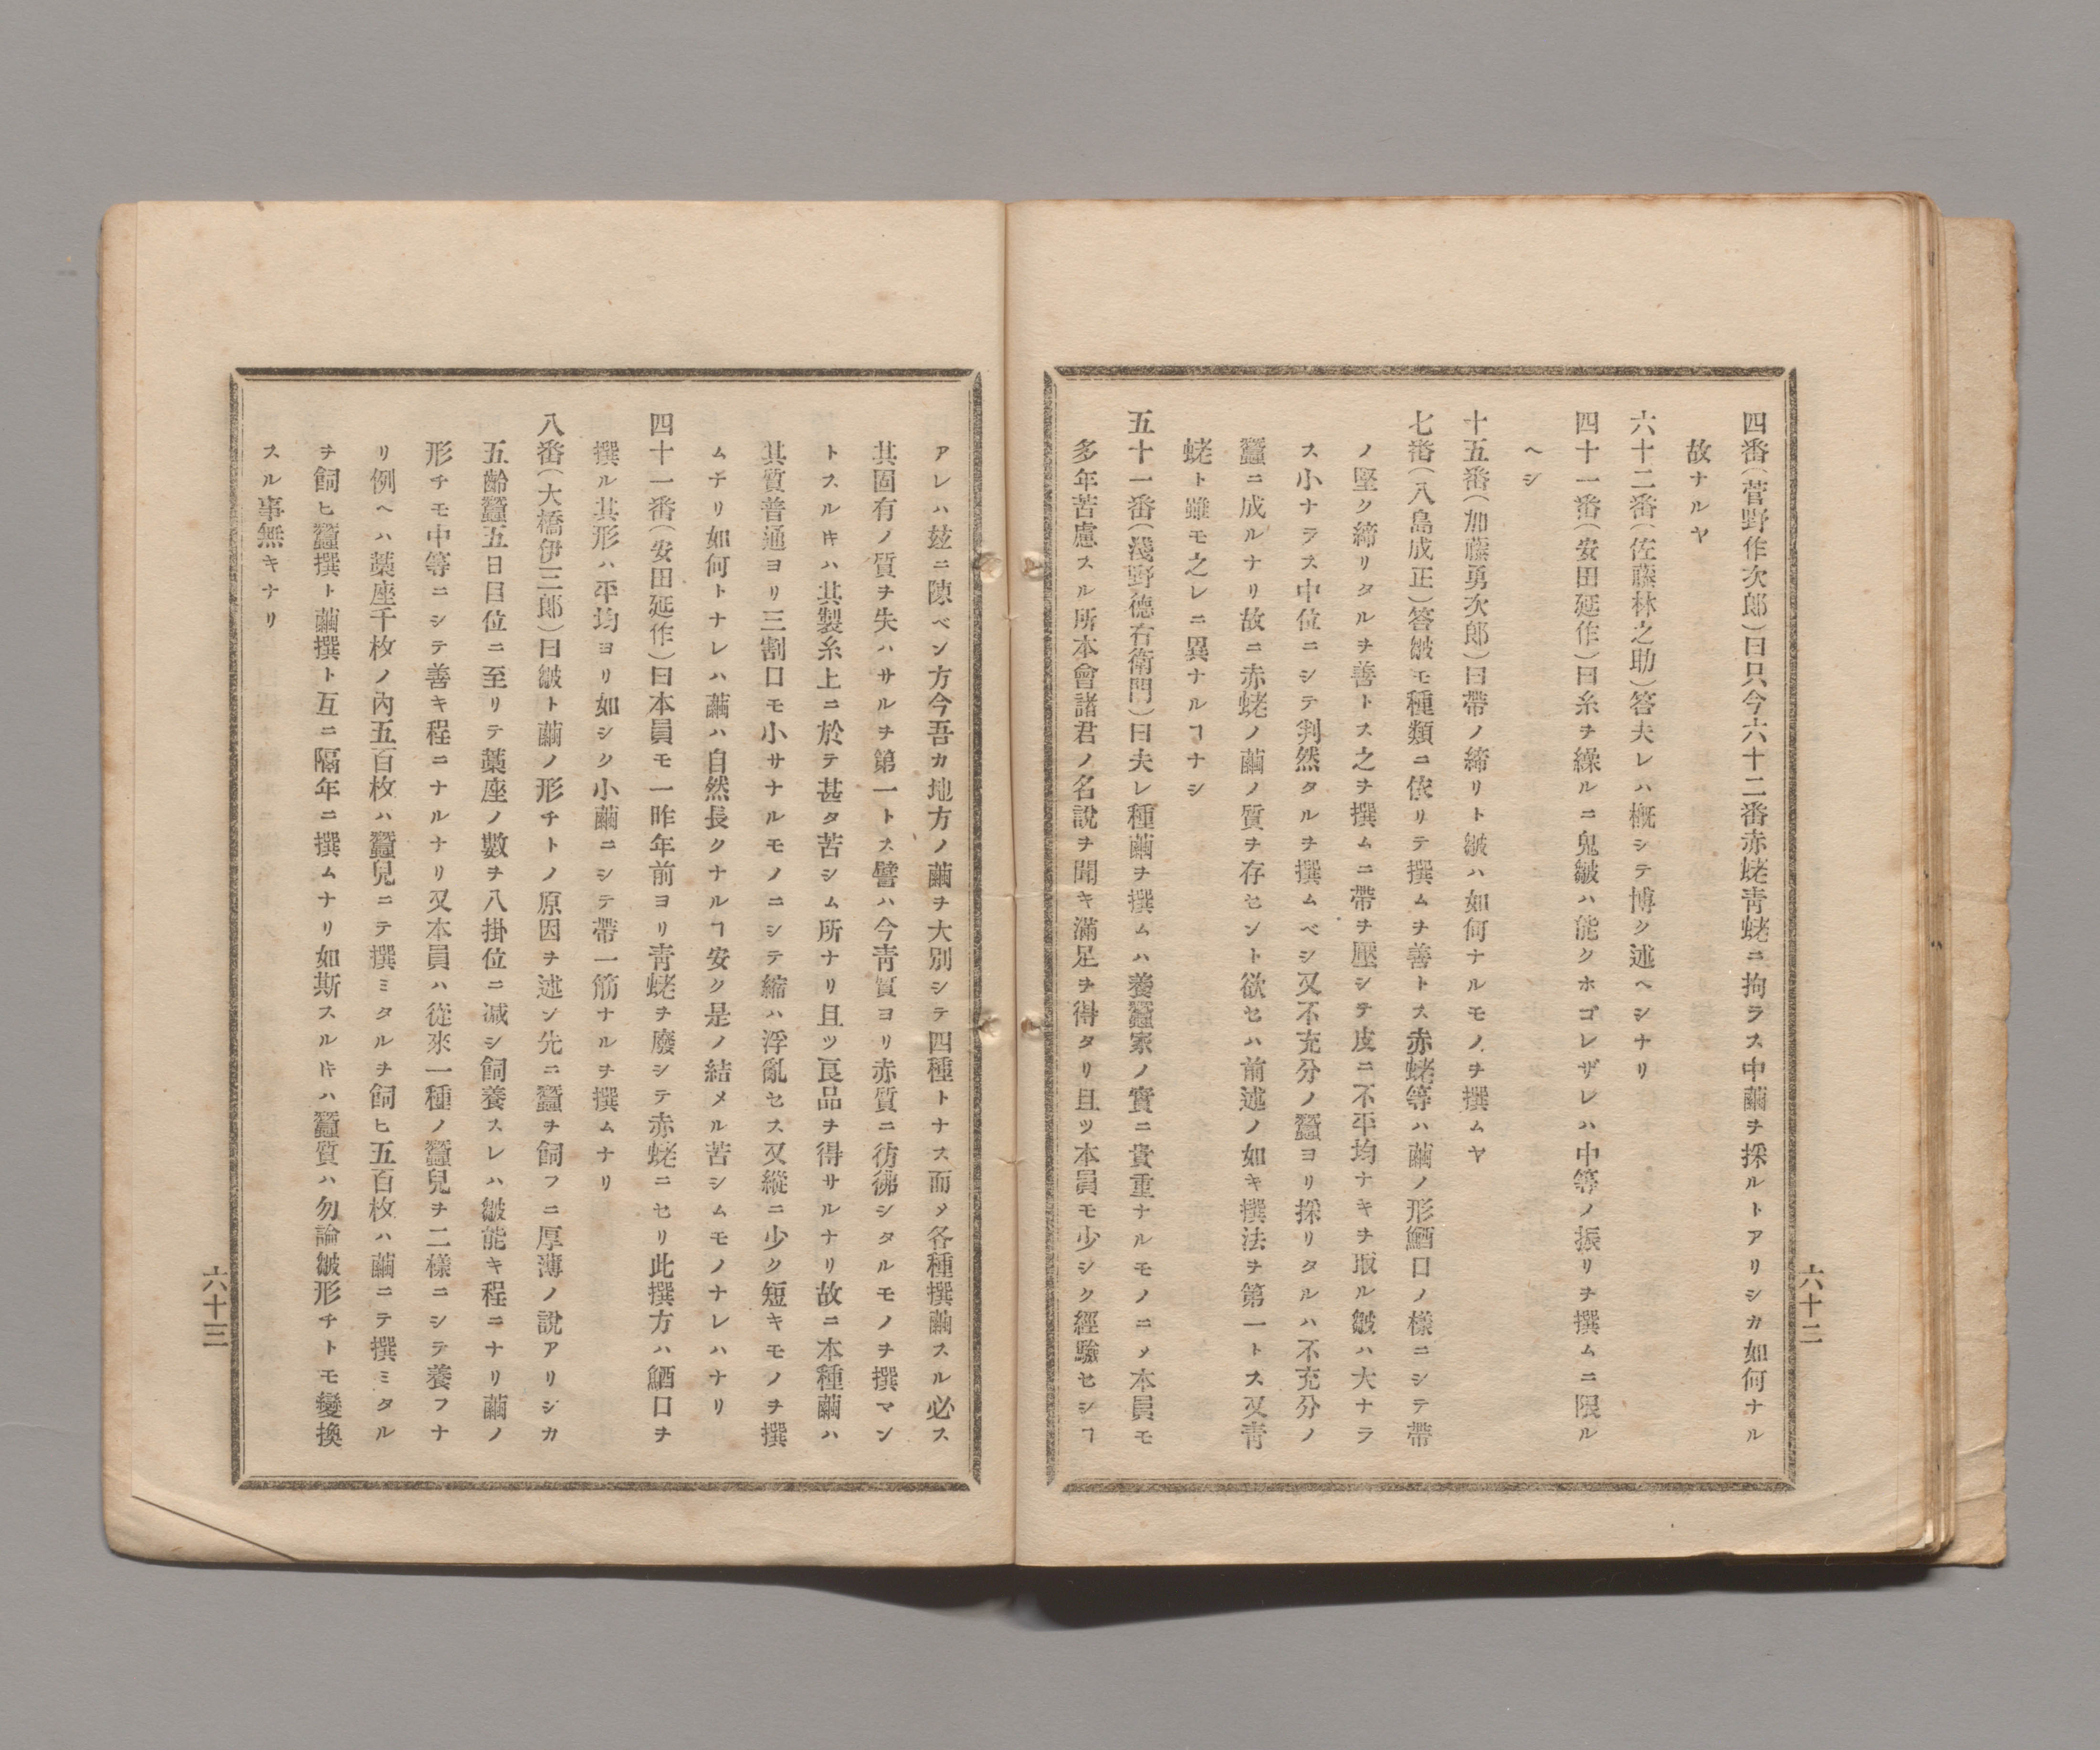 四番（菅野作次郎）曰只今六十二番赤蛯靑蛯ニ拘ラス中繭ヲ採ルトアリシカ如何ナル
故ナルヤ
六十二番（佐藤林之助）答夫レハ槪シテ博ク述ヘシナリ
四十一番（安田延作）曰糸ヲ繰ルニ鬼皺ハ能クホゴレザレハ中等ノ振リヲ撰ムニ限ル
ヘシ
十五番（加藤勇次郎）曰帶ノ締リト皺ハ如何ナルモノヲ撰ムヤ
七番（八島成正）答皺モ種類ニ依リテ撰ムヲ善トス赤蛯等ハ繭ノ形鰌口ノ樣ニシテ帶
ノ堅ク締リタルヲ善トス之ヲ撰ムニ帶ヲ壓シテ皮ニ不平均ナキヲ取ル皺ハ大ナラ
ス小ナラス中位ニシテ判然タルヲ撰ムベシ又不充分ノ蠶ヨリ採リタルハ不充分ノ
蠶ニ成ルナリ故ニ赤蛯ノ繭ノ質ヲ存セント欲セハ前述ノ如キ撰法ヲ第一トス又靑
蛯ト雖モ之レニ異ナルヿナシ
五十一番（淺野德右衛門）曰夫レ種繭ヲ撰ムハ養蠶家ノ實ニ貴重ナルモノニメ本員モ
多年苦慮スル所本會諸君ノ名說ヲ聞キ滿足ヲ得タリ且ツ本員モ少シク經驗セシヿ
六十二
アレハ玆ニ陳ベン方今吾カ地方ノ繭ヲ大別シテ四種トナス而メ各種撰繭スル必ス
其固有ノ質ヲ失ハサルヲ第一トス譬ハ今靑質ヨリ赤質ニ彷彿シタルモノヲ撰マン
トスルキハ其製糸上ニ於テ甚タ苦シム所ナリ且ツ良品ヲ得サルナリ故ニ本種繭ハ
其質普通ヨリ三割口モ小サナルモノニシテ縮ハ浮亂セス又縱ニ少ク短キモノヲ撰
ムナリ如何トナレハ繭ハ自然長クナルヿ安ク是ノ結メル苦シムモノナレハナリ
四十一番（安田延作）曰本員モ一昨年前ヨリ靑蛯ヲ廢シテ赤蛯ニセリ此撰方ハ鰌口ヲ
撰ル其形ハ平均ヨリ如シク小繭ニシテ帶一筋ナルヲ撰ムナリ
八番（大橋伊三郎）曰皺ト繭ノ形チトノ原因ヲ述ン先ニ蠶ヲ飼フニ厚薄ノ說アリシカ
五齡蠶五日目位ニ至リテ藁座ノ數ヲ八掛位ニ減シ飼養スレハ皺能キ程ニナリ繭ノ
形チモ中等ニシテ善キ程ニナルナリ又本員ハ從來一種ノ蠶兒ヲ二樣ニシテ養フナ
リ例ヘハ藁座千枚ノ內五百枚ハ蠶兒ニテ撰ミタルヲ飼ヒ五百枚ハ繭ニテ撰ミタル
ヲ飼ヒ蠶撰ト繭撰ト互ニ隔年ニ撰ムナリ如斯スルキハ蠶質ハ勿論皺形チトモ變換
スル事無キナリ
六十三